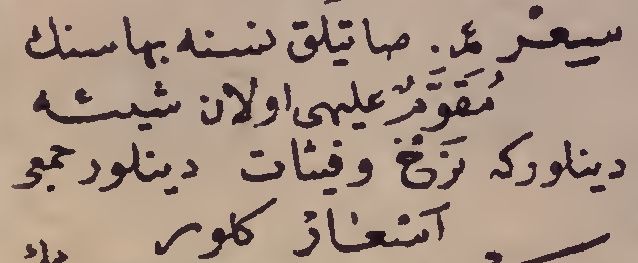 سِعْر ع. صاتيلق نسنه بهاسنك
مُقَوَّمٌ عليهى اولان شيئه
دينلوركه نَرْخْ وفيئات دينلور جمعى
اَسْعَارْ كلور